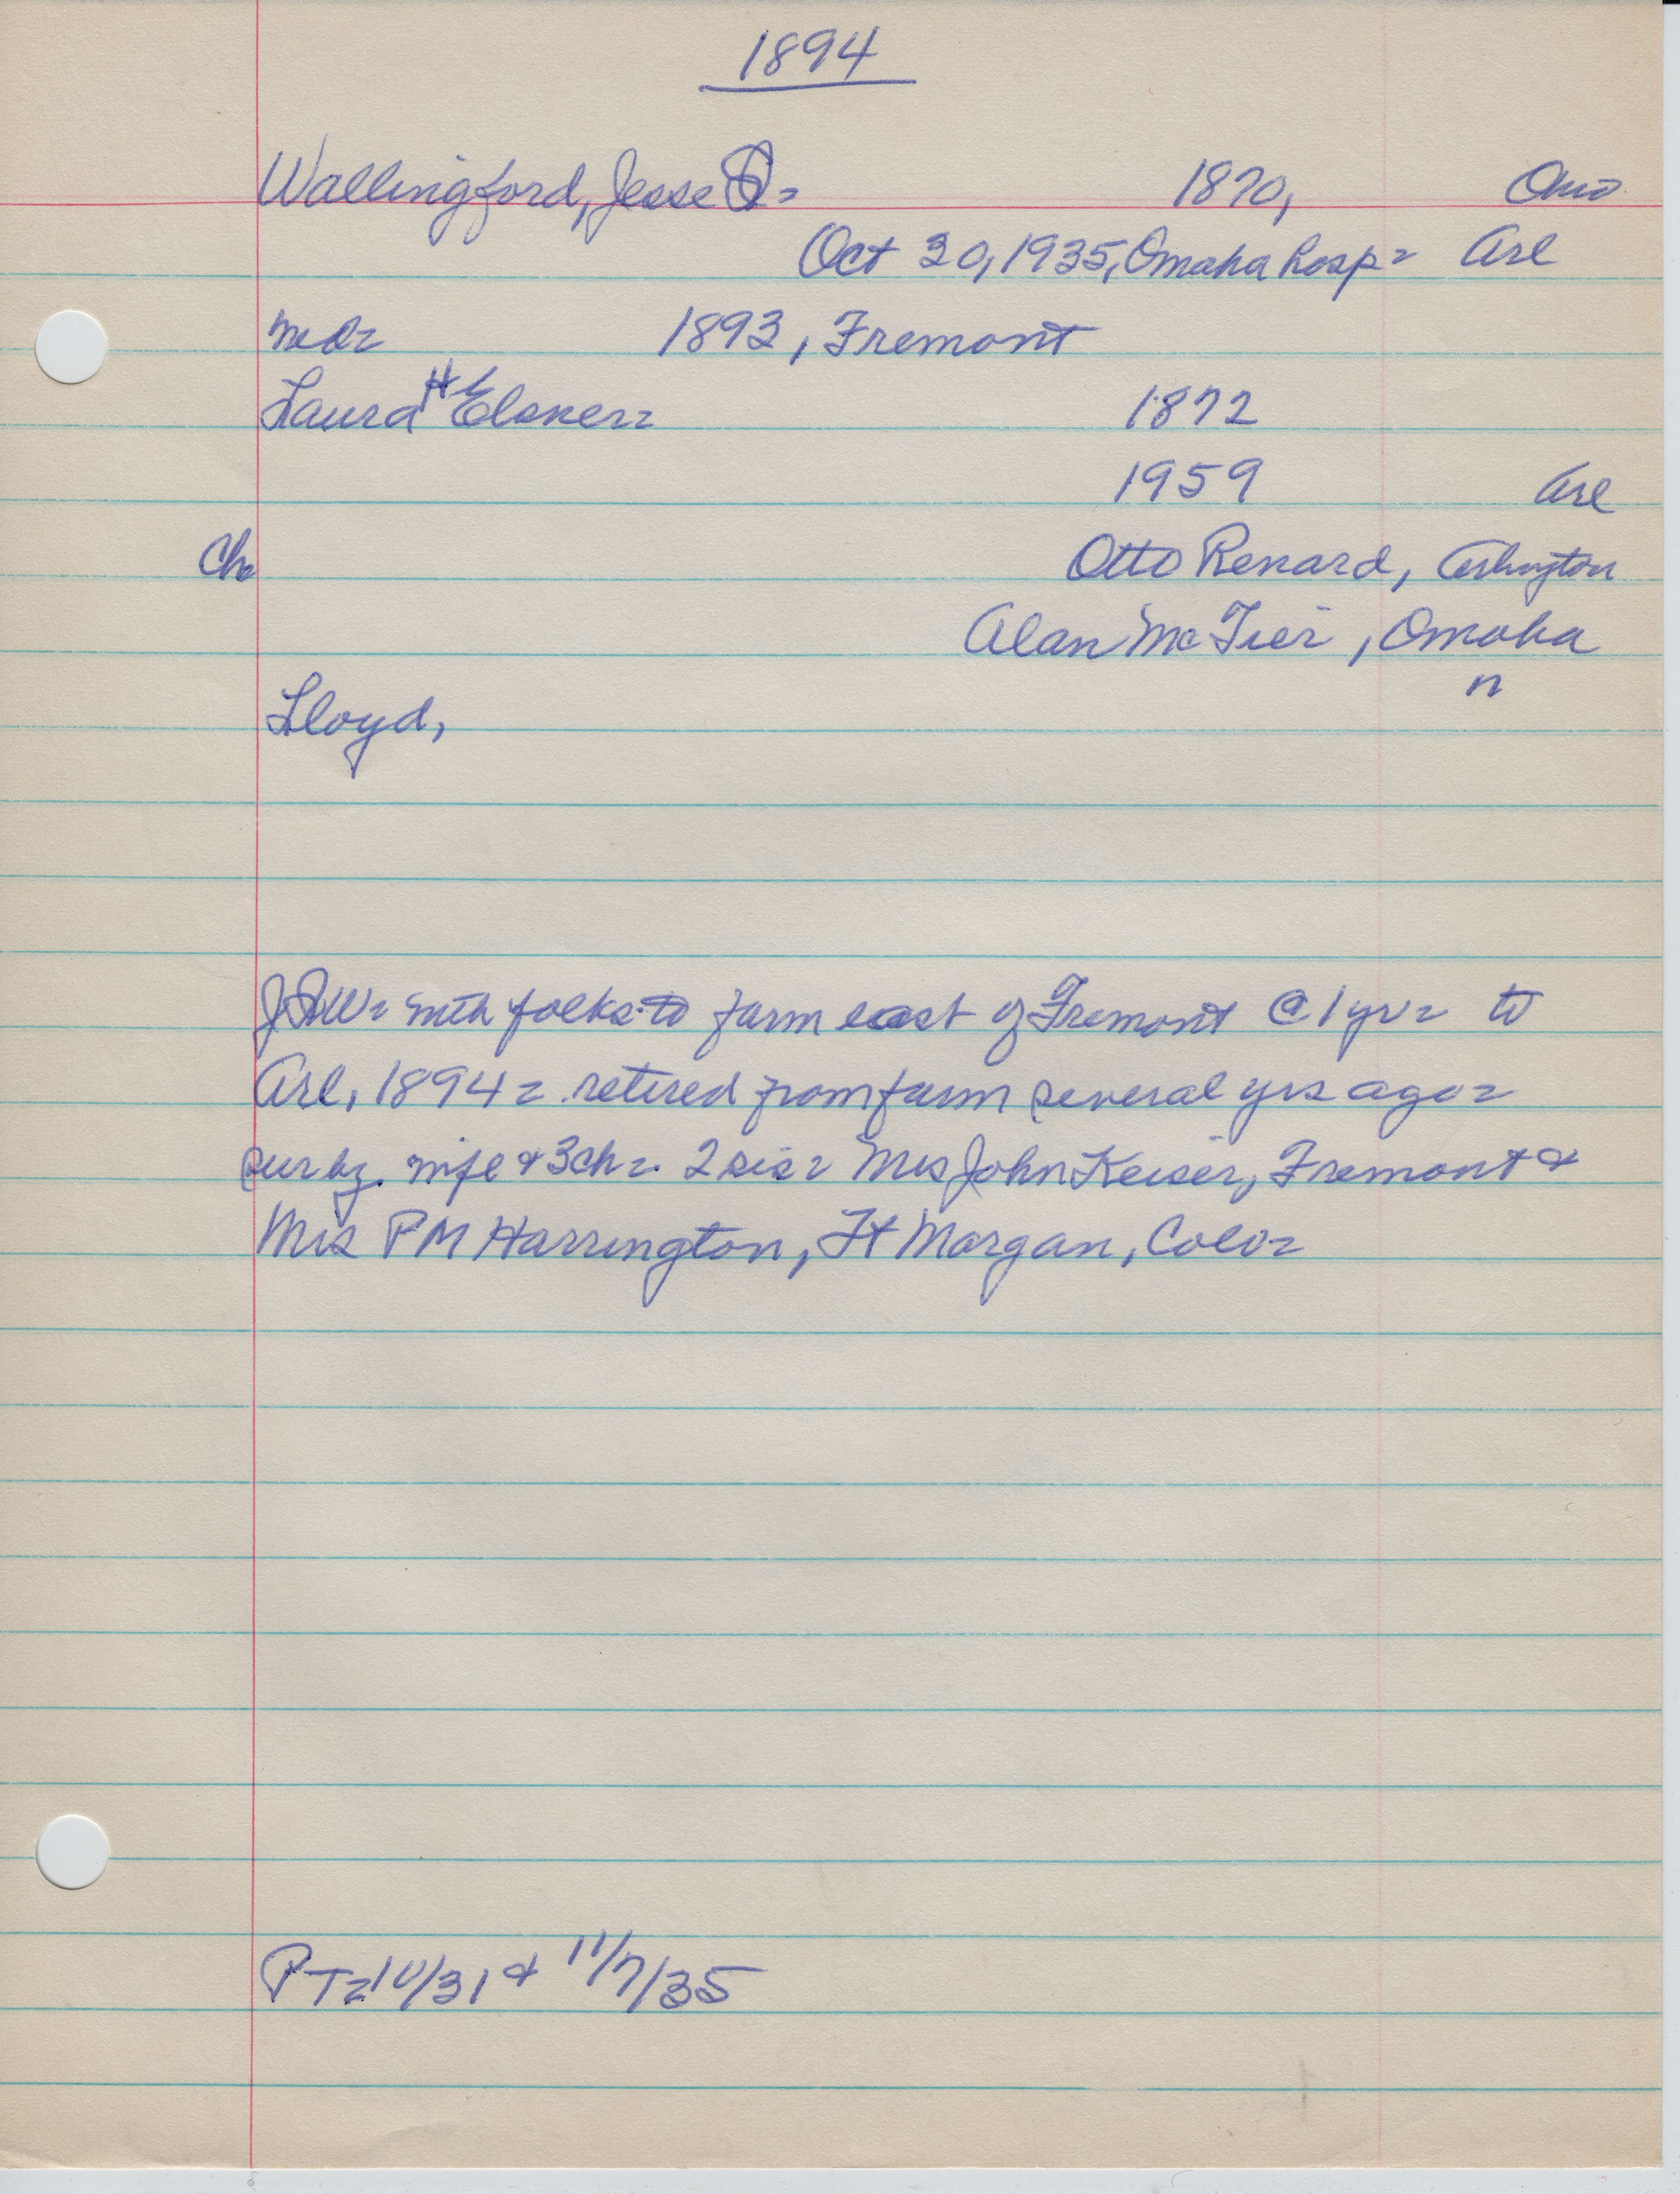 1894
Wallingford, Jesse = 1870, Ohio
Oct 30, 1935, Omaha hosp = Arl
md = 1893, Fremont
Laura H Elsner = 1872
1959 Arl
Ch
Otto Renard, Arlington
Alan McTier, Omaha
n
Lloyd,
with folks to farm east of Fremont @ 1 yr = to
Arl, 1894 = retired from farm several yrs ago =
sur by wife & 3 ch = 2 sis = Mrs John Keiser, Fremont &
Mrs PM Harrington, Ft Morgan, Colo =
PT = 10/31 & 11/7/35